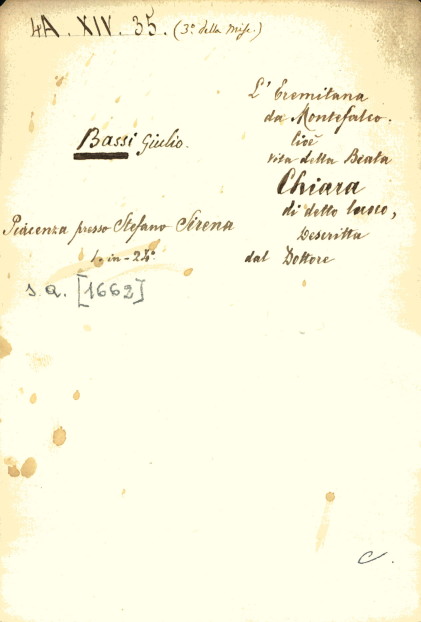 4A. XIV. 35. (3º della Misc.)
Bassi Giulio.
L' Eremitana
da Montefalco.
cioè
vita della Beata
Chiara
di detto luoco,
Descritta
dal Dottore
Piacenza presso Stefano Sirena
1. in-24º
s. a. [1662]
C.